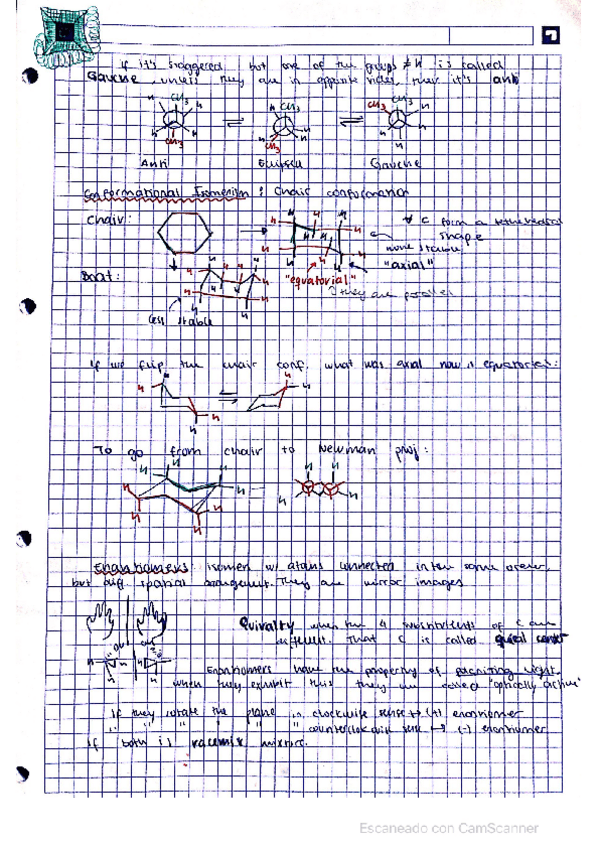 If it's staggered but one of the groups ≠ H is called
Gauche, unless they are in opposite sides, then it's anti
CH3 CH3 CH3
CH3 CH3
Anti Eclipsed Gauche
Conformational Isomerism: Chair conformation
Chair: ∀ C form a tetrahedral
shape
more stable
"axial"
"equatorial"
they are parallel
Boat:
less stable
If we flip the chair conf, what was axial now is equatorial:
To go from chair to Newman proj:
Enantiomers: isomers w/ atoms connected in the same order,
but diff. spatial arrangement. They are mirror images
Quiralty when the 4 substituents of C are
different. That C is called quiral center
Enantiomers have the property of light.
when they exhibit this they are called "optically active"
If they rotate the plane in clockwise sense → (+) enantiomer
" " " " " " counterclockwise sense → (-) enantiomer
If both is racemix mixture.
Escaneado con CamScanner